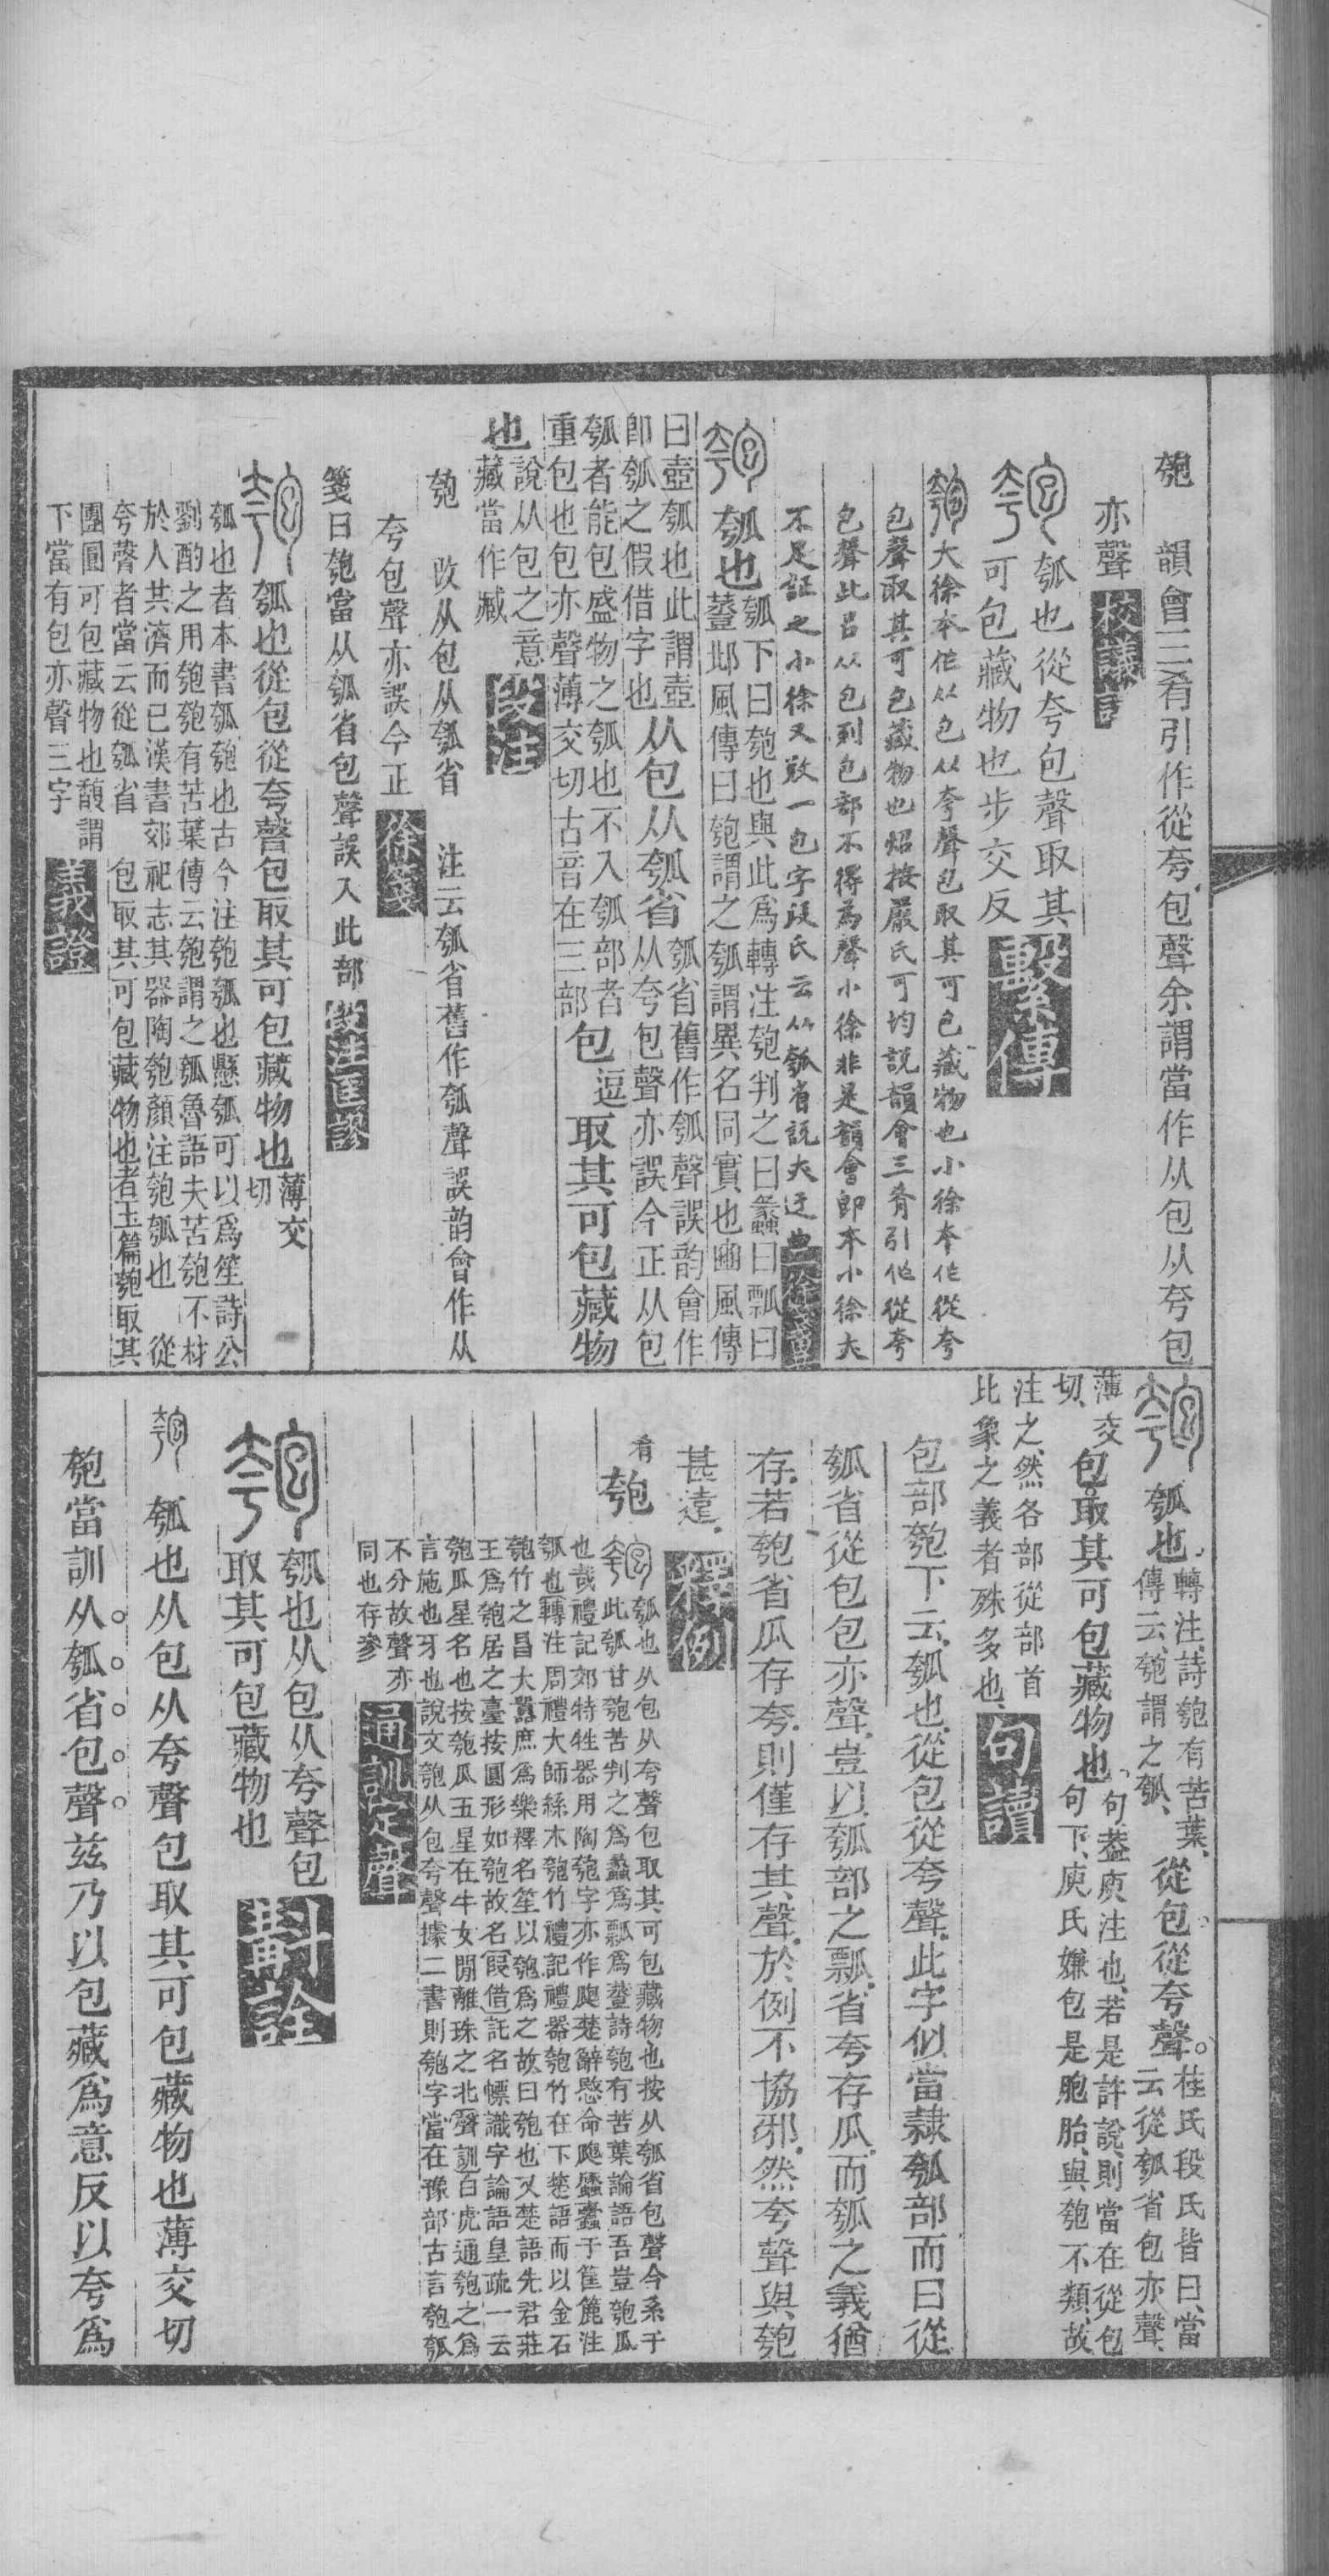 匏　韻會三肴引作從夸包聲余謂當作从包从夸包
亦聲 校議
瓠也從夸包聲取其
可包藏物也步交反 繫傳
匏 大徐本作从包从夸聲包取其可包藏物也小徐本作從夸
包聲取其可包藏物也炤按嚴氏可均說韻會三肴引作從夸
包聲此吕从包到包部不得為聲小徐非是韻會即本小徐夫
不足証之小徐又敚一包字段氏云从瓠省說太迂曲
瓠也
瓠下曰匏也與此爲轉注匏判之曰蠡曰瓢曰
𧯷邶風傳曰匏謂之瓠謂異名同實也豳風傳
曰壺瓠也此謂壺
即瓠之假借字也
从包从瓠省
瓠省舊作瓠聲誤韵會作
从夸包聲亦誤今正从包
瓠者能包盛物之瓠也不入瓠部者
重包也包亦聲薄交切古音在三部
包 逗 取其可包藏物
也
說从包之意
藏當作臧
段注
匏　改从包从瓠省　注云瓠省舊作瓠聲誤韵會作从
夸包聲亦誤今正 徐箋
箋曰匏當从瓠省包聲誤入此部 段注匡謬
瓠也從包從夸聲包取其可包藏物也 薄交
切
瓠也者本書瓠匏也古今注匏瓠也懸瓠可以爲笙詩公
劉酌之用匏匏有苦葉傳云匏謂之瓠魯語夫苦匏不材
於人共濟而已漢書郊祀志其器陶匏顏注匏瓠也　從
夸聲者當云從瓠省　包取其可包藏物也者玉篇匏取其
團圓可包藏物也馥謂
下當有包亦聲三字
義證
瓠也、
轉注、詩匏有苦葉、
傳云、匏謂之瓠、
從包從夸聲。
桂氏段氏皆曰、當
云從瓠省包亦聲、
薄交
切、
包取其可包藏物也、
句蓋庾注也、若是許說、則當在從包
句下、庾氏嫌包是胞胎、與匏不類、故
注之、然各部從部首
比象之義者殊多也、
句讀
包部匏下云、瓠也、從包從夸聲、此字似當隸瓠部而曰從
瓠省從包包亦聲、豈以瓠部之瓢、省夸存瓜、而瓠之義猶
存、若匏省瓜存夸、則僅存其聲、於例不協邪、然夸聲與匏
甚遠、 釋例
肴
匏
瓠也从包从夸聲包取其可包藏物也按从瓠省包聲今系于
此瓠甘匏苦判之爲蠡爲瓢爲𧯷詩匏有苦葉論語吾豈匏瓜
也哉禮記郊特牲器用陶匏字亦作瓟楚辭愍命瓟蠡蠹于筐簏注
瓠也轉注周禮大師絲木匏竹禮記禮器匏竹在下楚語而以金石
匏竹之昌大囂庶爲樂釋名笙以匏爲之故曰匏也又楚語先君莊
王爲匏居之臺按圓形如匏故名假借託名幖識字論語皇疏一云
匏瓜星名也按匏瓜五星在牛女閒離珠之北聲訓白虎通匏之爲
言施也牙也說文匏从包夸聲據二書則匏字當在豫部古言匏瓠
不分故聲亦
同也存參
通訓定聲
瓠也从包从夸聲包
取其可包藏物也
斠詮
瓠也从包从夸聲包取其可包藏物也薄交切
匏當訓从瓠省包聲兹乃以包藏爲意反以夸爲